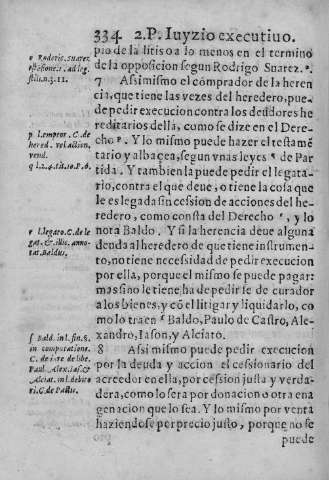 334 2.P. Iuyzio executiuo.
pio de la litis o a lo menos en el termino
de la opposicion segun Rodrigo Suarez º.
7 Assimismo el comprador de la heren
cia, que tiene las veces del heredero, pue-
de pedir execucion contra los deudores he
reditarios della, como se dize en el Dere-
cho p. Y lo mismo puede hazer el testamẽ
tario y albacea, segun vnas leyes q de Par
tida. Y tambien la puede pedir el legata-
rio, contra el que deue, o tiene la cosa que
le es legada sin cession de acciones del he-
redero, como consta del Derecho r, y lo
nota Baldo. Y si la herencia deue alguna
deuda al heredero de que tiene instrumen-
to, no tiene necessidad de pedir execucion
por ella, porque el mismo se puede pagar:
mas sino le tiene, ha de pedir se de curador
a los bienes, y cõ el litigar y liquidarlo, co
mo lo traen s Baldo, Paulo de Castro, Ale-
xandro, Iason, y Alciato.
8 Assi mismo puede pedir execucion
por la deuda y accion el cessionario del
acreedor en ella, por cession justa y verda-
dera, como lo sera por donacion o otra ena
genacion que lo sea. Y lo mismo por venta
haziendose por precio justo, porque no se
puede
o Roderic. Suarez
ad leg.
p l. emptor. C. de
hered. vel action.
vend.
q l.2.4. tit.10.P.6.
r l. legato. C. de le
gat. & illic. anno-
tat. Baldus.
s Bald. in l. fin. §.
in computatione.
C. de iure de libe.
Paul. Alex. Ias. &
Alciat. in l. debito
ri. C. de Pactis.